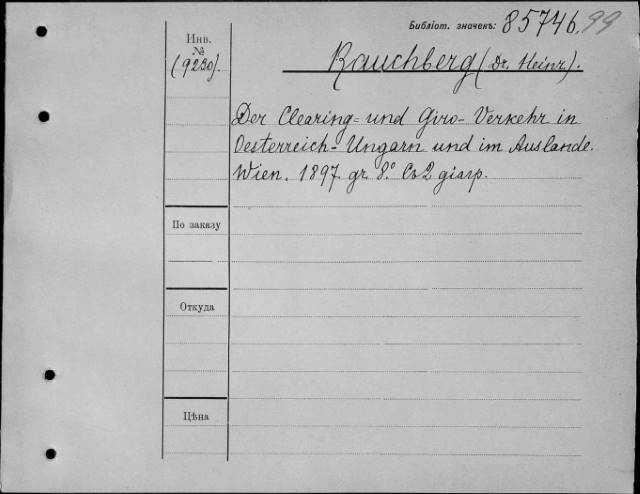 Библіот. значекъ: 85746. 99
Инв.
№
(9230).
Rauchberg (Dr. Heinr).
Der Clearing= und Giro- Verkehr in
Oesterreich- Ungarn und im Auslande.
Wien. 1897. gr. 8.° Со 2 діагр.
По заказу
Откуда
Цѣна